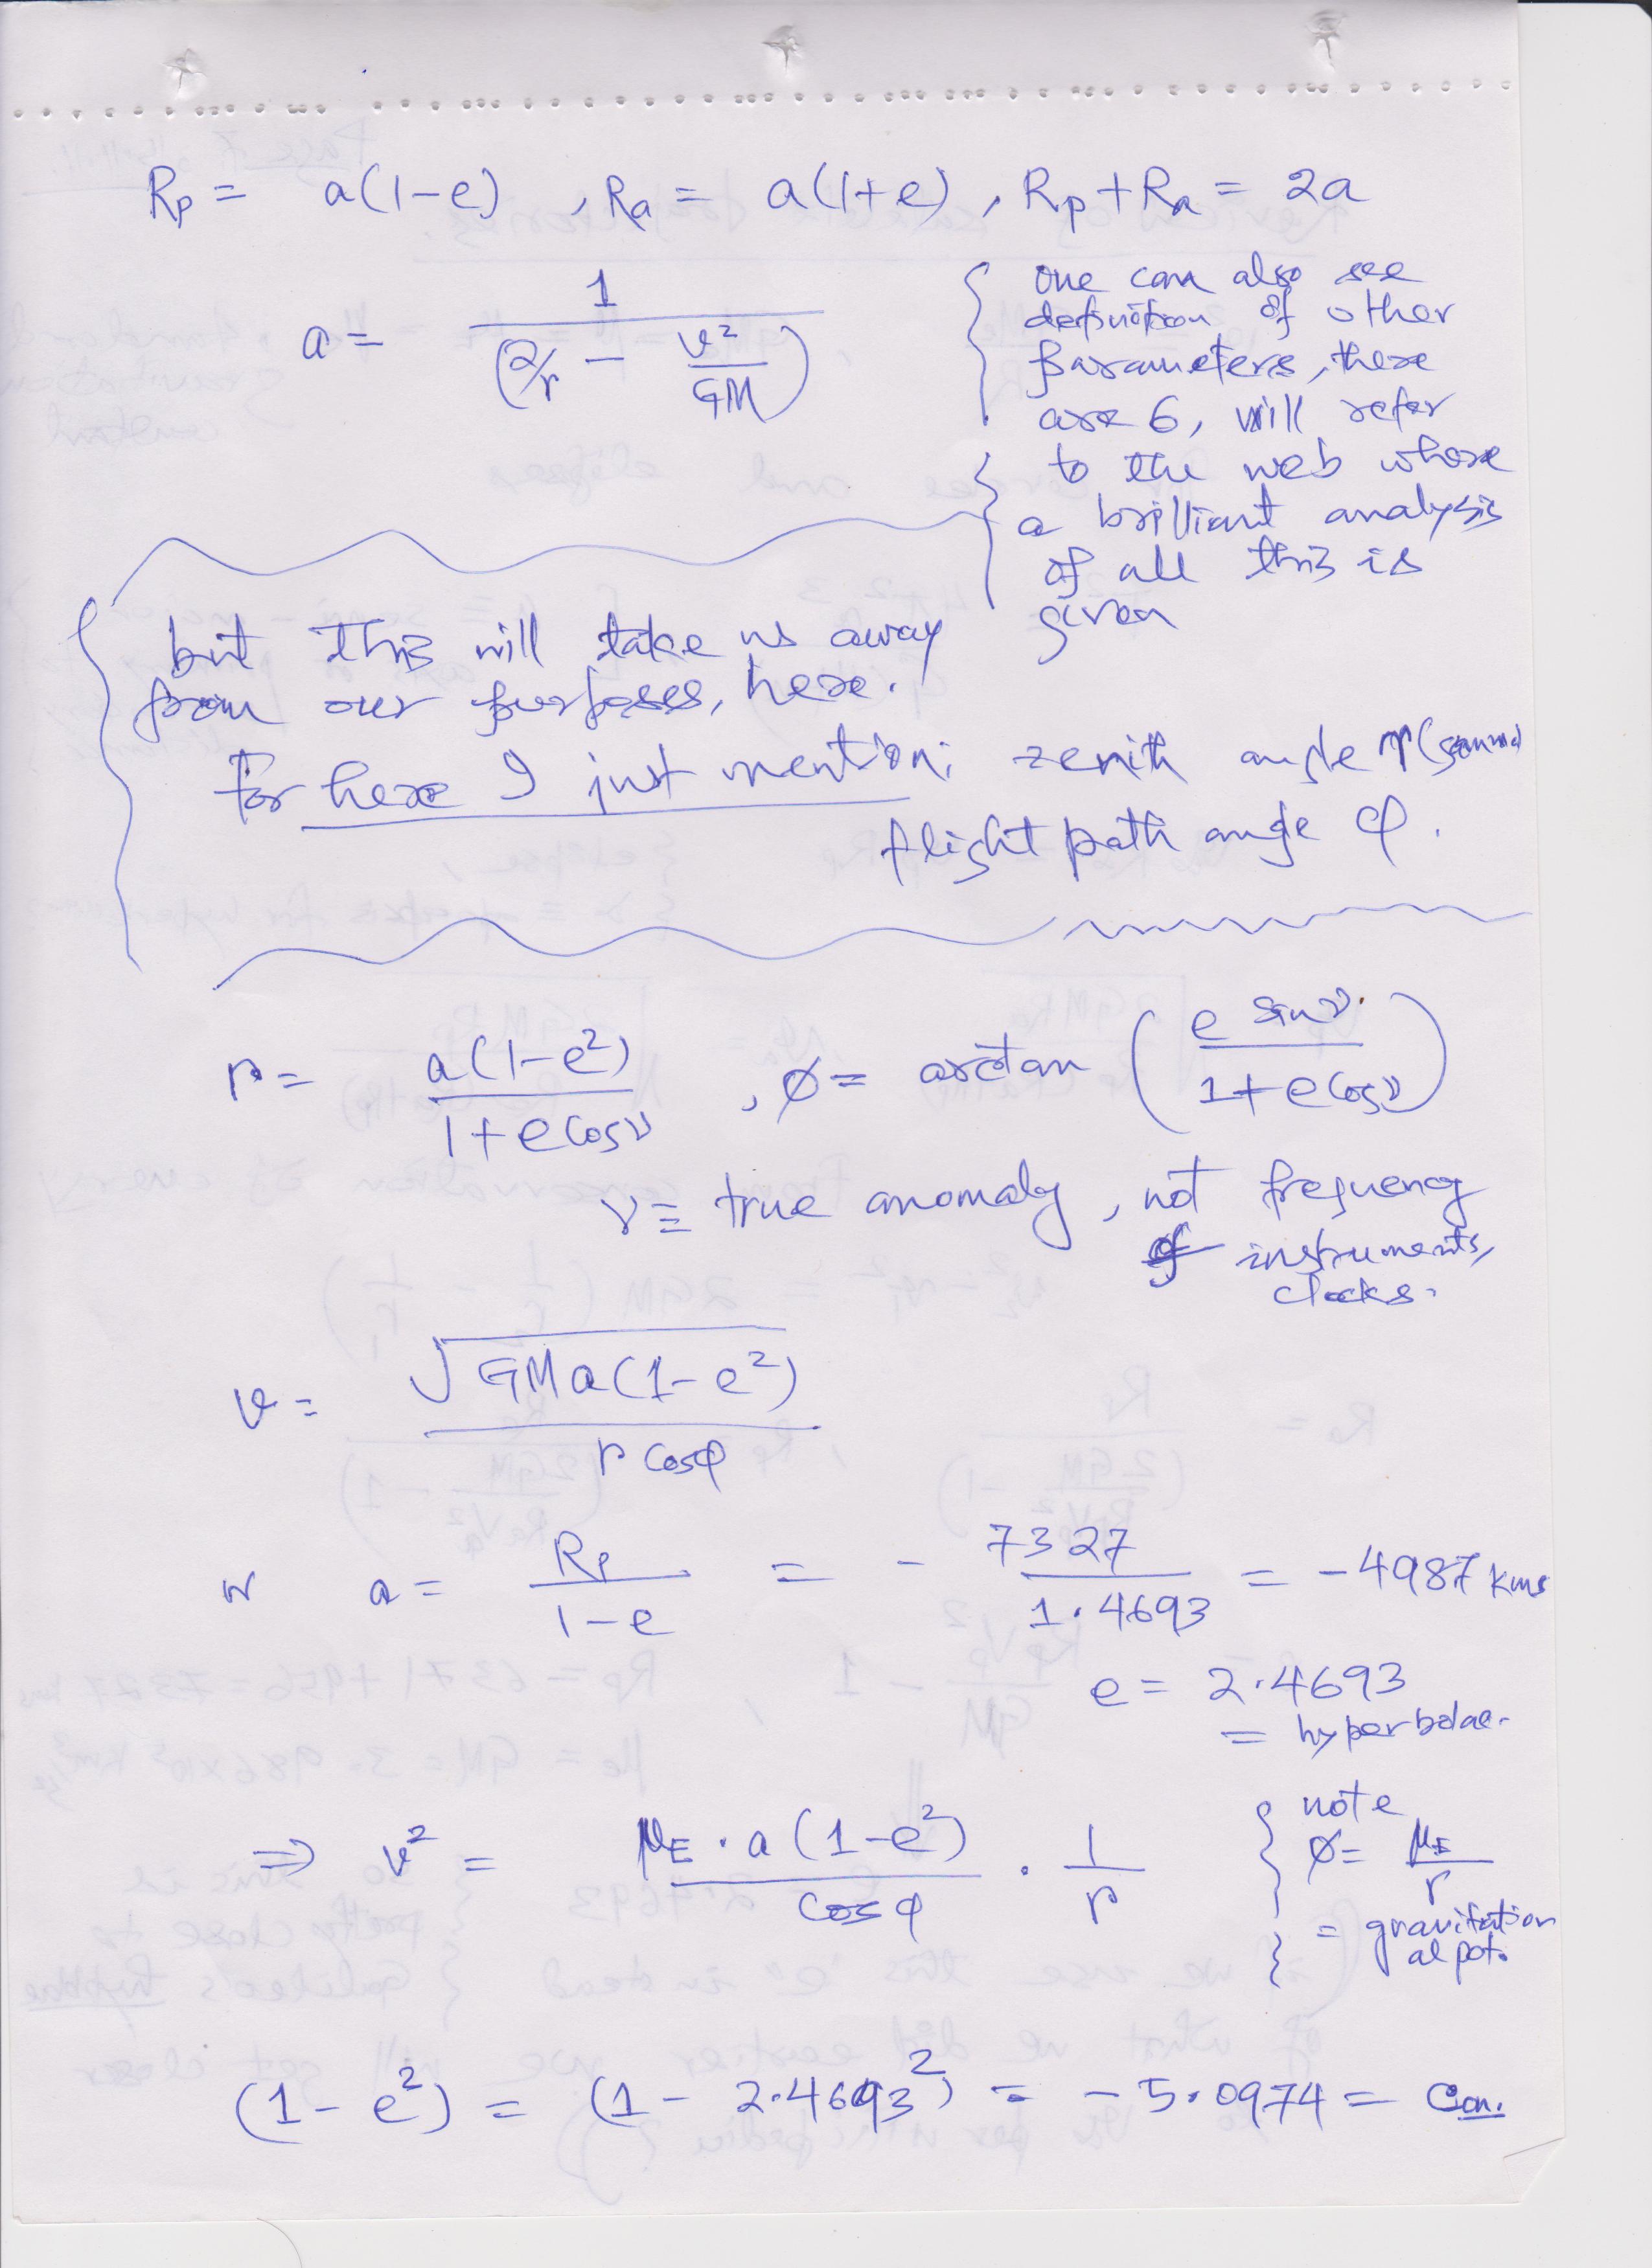 Rp = a(1-e) , Ra = a(1+e) , Rp + Ra = 2a
a = 1 / (2/r - v²/GM)
{ one can also see
definition of other
parameters, there
are 6, will refer
to the web where
a brilliant analysis
of all this is
given
but this will take us away
from our purposes, here.
For here I just mention; zenith angle γ(
flight path angle φ.
r = a(1-e²) / 1+e cosν , ø = arctan (e sinν / 1+e cosν)
ν ≡ true anomaly, not frequency
of instruments,
clocks.
v = √GMa(1-e²) / r cosφ
a = Rp / 1-e = - 7327 / 1.4693 = -4987 kms
e = 2.4693
= hyperbolae.
⇒ v² = μE · a(1-e²) / cosφ · 1/r
{ note
ø = μE / r
= gravitation
al pot.
(1-e²) = (1 - 2.4693²) = -5.0974 = Con.